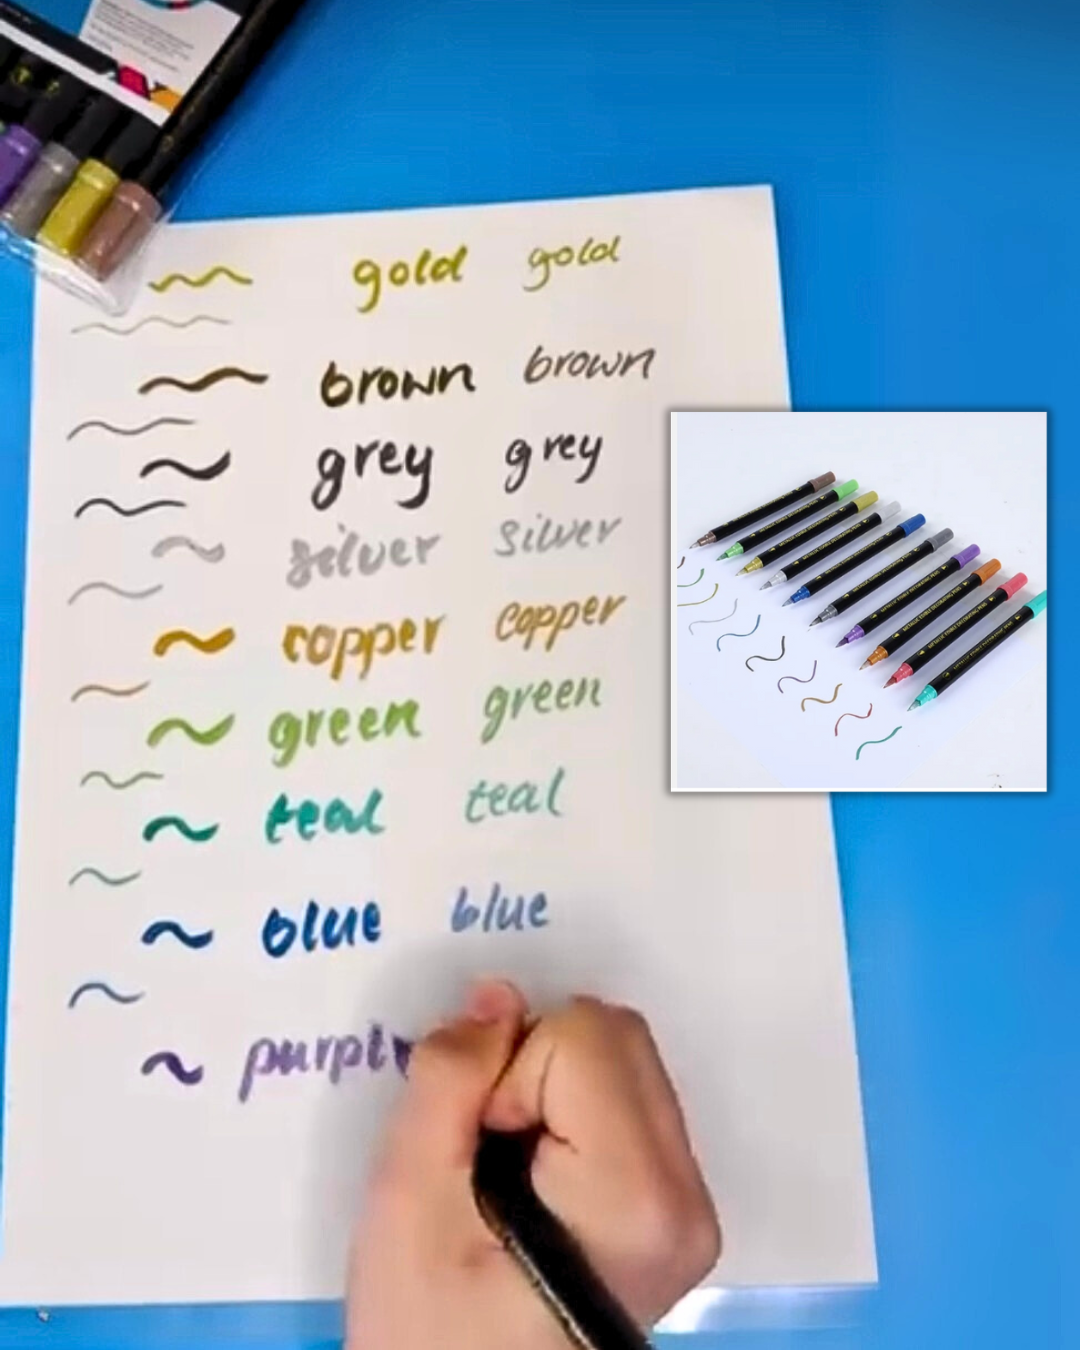 gold gold
brown brown
grey grey
silver silver
copper copper
green green
teal teal
blue blue